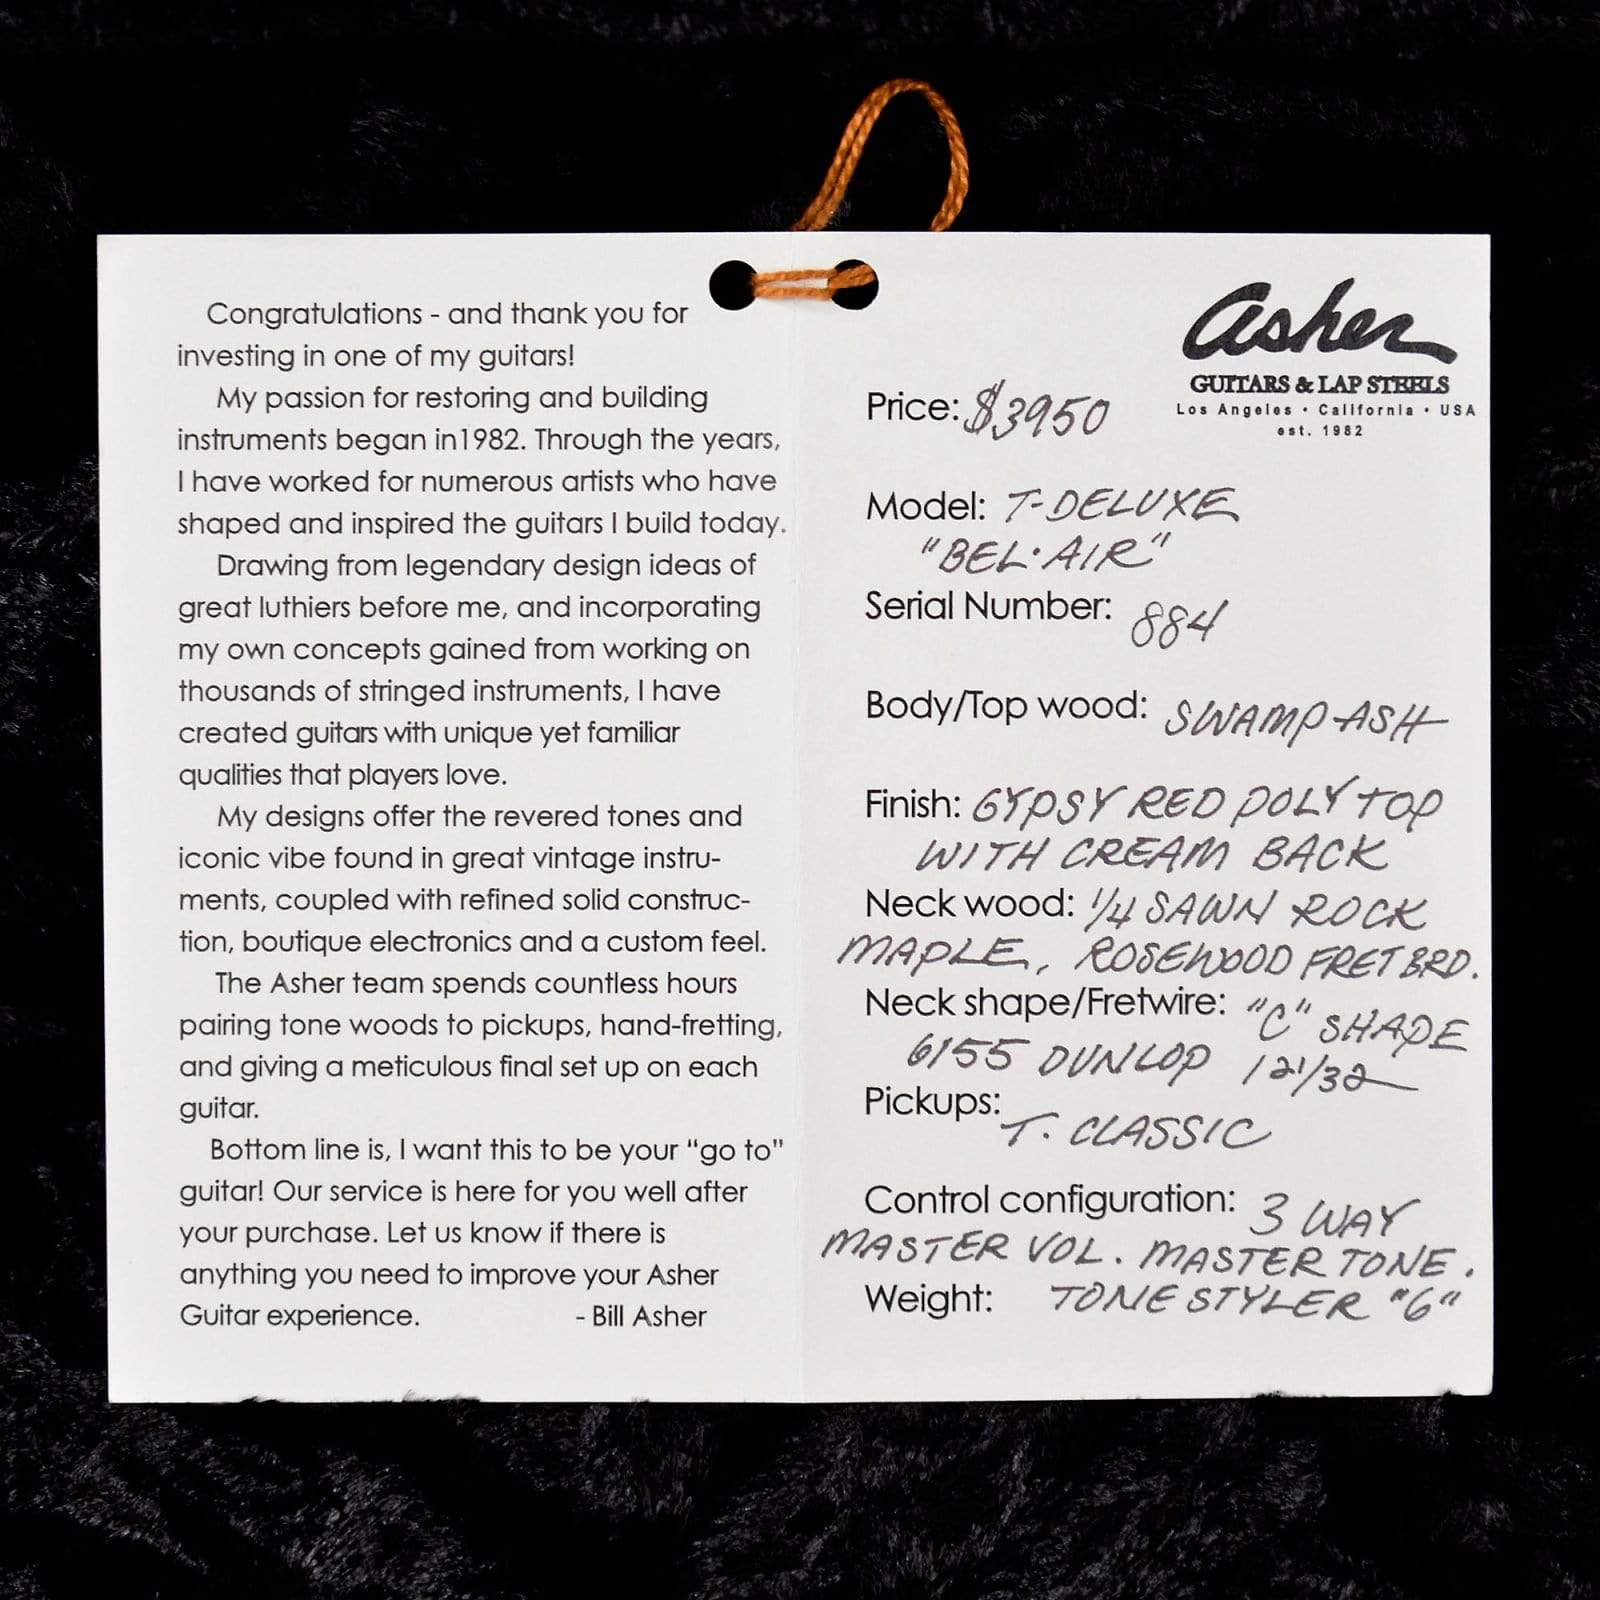 Congratulations - and thank you for
investing in one of my guitars!
My passion for restoring and building
instruments began in1982. Through the years,
I have worked for numerous artists who have
shaped and inspired the guitars I build today.
Drawing from legendary design ideas of
great luthiers before me, and incorporating
my own concepts gained from working on
thousands of stringed instruments, I have
created guitars with unique yet familiar
qualities that players love.
My designs offer the revered tones and
iconic vibe found in great vintage instru-
ments, coupled with refined solid construc-
tion, boutique electronics and a custom feel.
The Asher team spends countless hours
pairing tone woods to pickups, hand-fretting,
and giving a meticulous final set up on each
guitar.
Bottom line is, I want this to be your "go to"
guitar! Our service is here for you well after
your purchase. Let us know if there is
anything you need to improve your Asher
Guitar experience. - Bill Asher
asher
GUITARS & LAP STEELS
Los Angeles • California • USA
est. 1982
Price: $3950
Model: T-DELUXE
"BEL·AIR"
Serial Number: 884
Body/Top wood: SWAMP ASH
Finish: GYPSY RED POLY TOP
WITH CREAM BACK
Neck wood: 1/4 SAWN ROCK
MAPLE, ROSEWOOD FRETBRD.
Neck shape/Fretwire: "C" SHAPE
6155 DUNLOP 1 21/32
Pickups: T. CLASSIC
Control configuration: 3 WAY
MASTER VOL. MASTER TONE.
Weight: TONE STYLER "6"